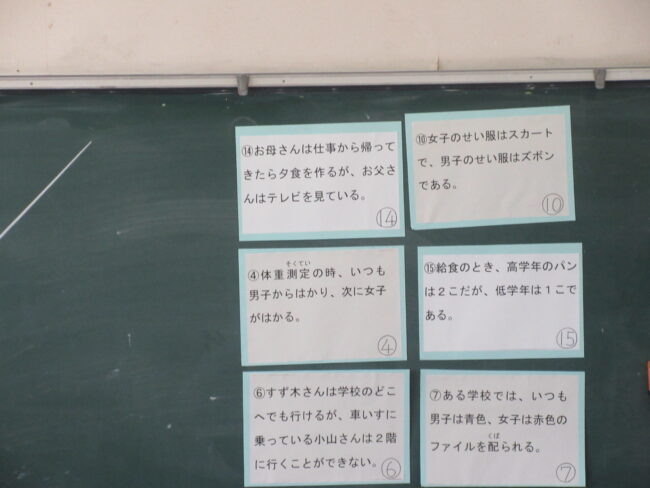 ⑭お母さんは仕事から帰って
きたら夕食を作るが、お父さ
んはテレビを見ている。
⑭
⑩女子のせい服はスカート
で、男子のせい服はズボン
である。
⑩
そくてい
④体重測定の時、いつも
男子からはかり、次に女子
がはかる。
④
⑮給食のとき、高学年のパン
は２こだが、低学年は１こで
ある。
⑮
⑥すず木さんは学校のどこ
へでも行けるが、車いすに
乗っている小山さんは２階
に行くことができない。
⑥
⑦ある学校では、いつも
男子は青色、女子は赤色の
くば
ファイルを配られる。
⑦